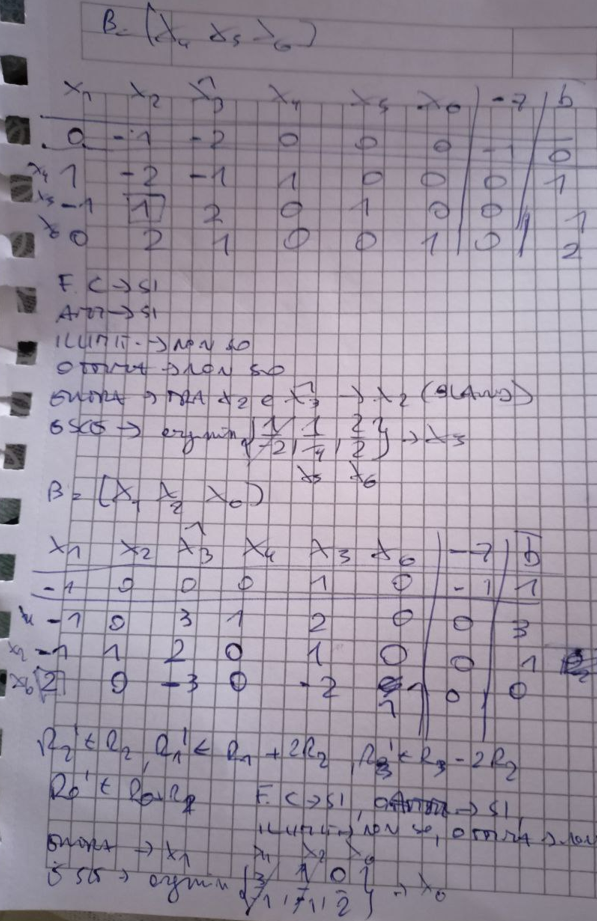 B = (x4 x5 x6)
x1 x2 x̂3 x4 x5 x6 | -z | b
0 -1 -2 0 0 0 | -1 | 0
x4 1 -2 -1 1 0 0 | 0 | 1
x5 -1 1 2 0 1 0 | 0 | 1
x6 0 2 1 0 0 1 | 0 | 2
F.C → SI
AMM → SI
ILLIMIT → NON SO
OTTIMA → NON SO
ENTRA → TRA x2 e x̂3 → x2 (BLAND)
ESCE → argmin { 1/-2, 1/1, 2/2 } → x5
x5 x6
B = (x4 x2 x6)
x1 x2 x̂3 x4 x5 x6 | -z | b
-1 0 0 0 1 0 | -1 | 1
x4 -1 0 3 1 2 0 | 0 | 3
x2 -1 1 2 0 1 0 | 0 | 1
x6 2 0 -3 0 -2 1 | 0 | 0
R2' ← R2, R1' ← R1 + 2R2, R3' ← R3 - 2R2
R0' ← R0 + R2 F.C → SI, AMM → SI,
ILLIMIT → NON SO, OTTIMA → NON
ENTRA → x1 x4 x2 x6
ESCE → argmin { 3/-1, 1/-1, 0/2 } → x6